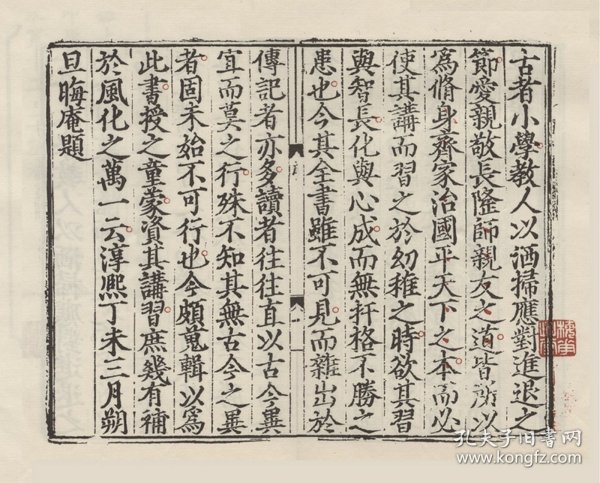 古者小學教人以洒掃應對進退之
節愛親敬長隆師親友之道皆所以
為脩身齊家治國平天下之本而必
使其講而習之於幼稚之時欲其習
與智長化與心成而無扞格不勝之
患也今其全書雖不可見而雜出於
傳記者亦多讀者往往直以古今異
宜而莫之行殊不知其無古今之異
者固未始不可行也今頗蒐輯以為
此書授之童蒙資其講習庶幾有補
於風化之萬一云淳熙丁未三月朔
旦晦庵題
孔夫子旧书网
www.kongfz.com